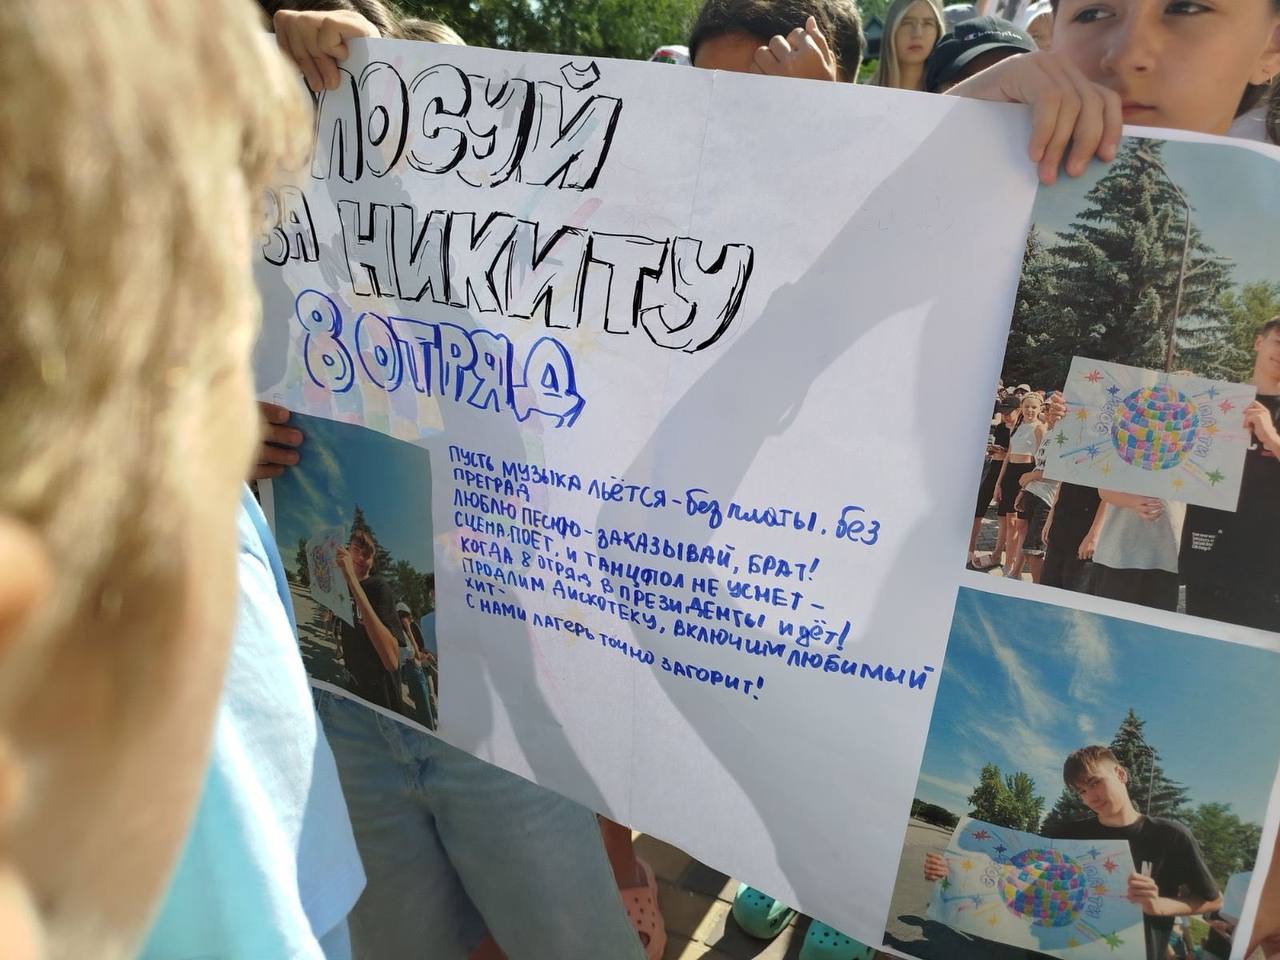 ЛОСУЙ
ЗА НИКИТУ
8 ОТРЯД
ПУСТЬ МУЗЫКА ЛЬЁТСЯ - без платы, без
ПРЕГРАД
ЛЮБЛЮ ПЕСНЮ - ЗАКАЗЫВАЙ, БРАТ!
СЦЕНА ПОЕТ, И ТАНЦПОЛ НЕ УСНЕТ -
КОГДА 8 ОТРЯД В ПРЕЗИДЕНТЫ идёт!
ПРОДЛИМ ДИСКОТЕКУ, ВКЛЮЧИМ ЛЮБИМЫЙ
ХИТ -
С НАМИ ЛАГЕРЬ ТОЧНО ЗАГОРИТ!
Champion